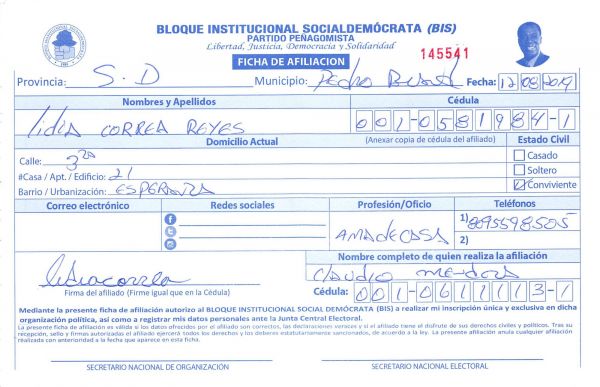 BLOQUE INSTITUCIONAL SOCIALDEMÓCRATA (BIS)
PARTIDO PEÑAGOMISTA
Libertad, Justicia, Democracia y Solidaridad
FICHA DE AFILIACION
145541
Provincia: S.D Municipio: Pedro Brand Fecha: 12/08/2019
Nombres y Apellidos Cédula
lidia CORREA REYES 001-0581984-1
Domicilio Actual (Anexar copia de cédula del afiliado) Estado Civil
Calle: 3ra Casado
#Casa / Apt. / Edificio: 21 Soltero
Barrio / Urbanización: ESPERANZA Conviviente
Correo electrónico Redes sociales Profesión/Oficio Teléfonos
AMA DE CASA 1) 8095598505
2)
Nombre completo de quien realiza la afiliación
lidia correa Claudio Mendoza
Firma del afiliado (Firme igual que en la Cédula) Cédula: 001-0611113-1
Mediante la presente ficha de afiliación autorizo al BLOQUE INSTITUCIONAL SOCIAL DEMÓCRATA (BIS) a realizar mi inscripción única y exclusiva en dicha
organización política, así como a registrar mis datos personales ante la Junta Central Electoral.
La presente ficha de afiliación es válida si los datos ofrecidos por el afiliado son correctos, las declaraciones veraces y si el afiliado tiene el disfrute de sus derechos civiles y políticos. Tras su
recepción, sello y firmas autorizadas el afiliado ejercerá todos los derechos y los deberes estatutariamente sancionados, de acuerdo a la ley. La presente afiliación anula cualquier afiliación
realizada con anterioridad a la fecha que aparece en esta ficha.
SECRETARIO NACIONAL DE ORGANIZACIÓN SECRETARIO NACIONAL ELECTORAL